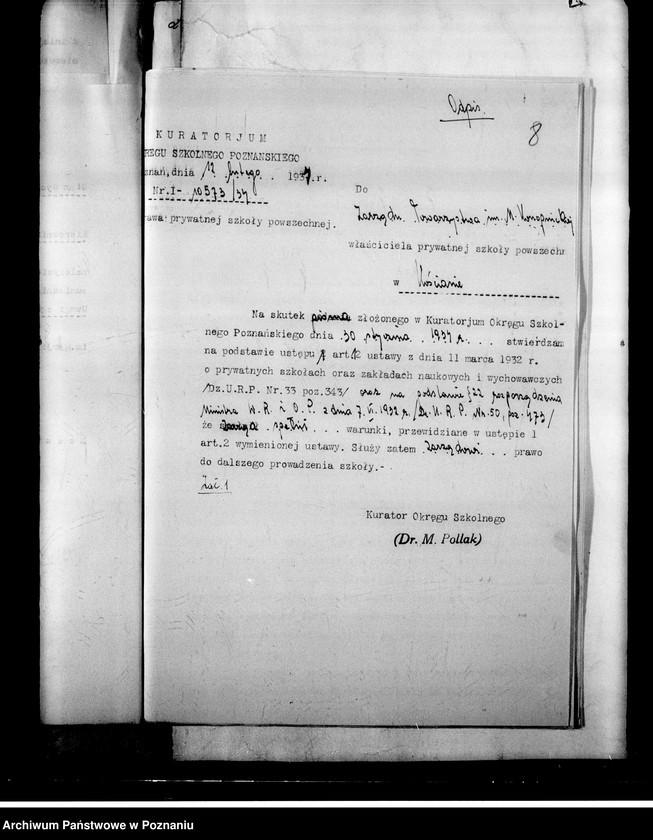 Odpis.
8
KURATORJUM
RĘGU SZKOLNEGO POZNAŃSKIEGO
znań, dnia 12 lutego . 1937.r.
Nr.I- 10573/37
Do
Zarządu Towarzystwa im. M. Konopnickiej
rawa: prywatnej szkoły powszechnej.
właściciela prywatnej szkoły powszechn
w Kościanie
Na skutek pisma złożonego w Kuratorjum Okręgu Szkol-
nego Poznańskiego dnia 30 stycznia . 1937 r. . . stwierdzam
na podstawie ustępu art.12 ustawy z dnia 11 marca 1932 r.
o prywatnych szkołach oraz zakładach naukowych i wychowawczych
/Dz.U.R.P. Nr.33 poz.343/ oraz na podstawie § 22 rozporządzenia
Ministra W. R. i O. P. z dnia 7.VI.1932 r. /Dz. U. R. P. Nr. 50, poz. 473/
że . spełnił . . . warunki, przewidziane w ustępie 1
art.2 wymienionej ustawy. Służy zatem Zarządowi . . . prawo
do dalszego prowadzenia szkoły.-
Zał. 1
Kurator Okręgu Szkolnego
(Dr. M. Pollak)
Archiwum Państwowe w Poznaniu